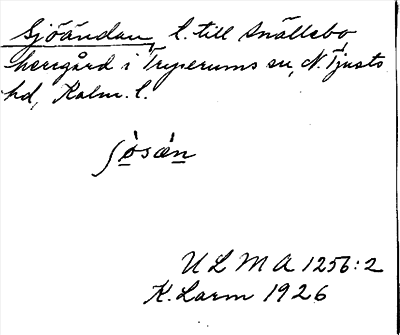 Sjöändan, l. till Snällebo
herrgård i Tryserums sn, N. Tjusts
hd, Kalm. l.
ʃòsæ̀n
ULMA 1256:2
K. Larm 1926